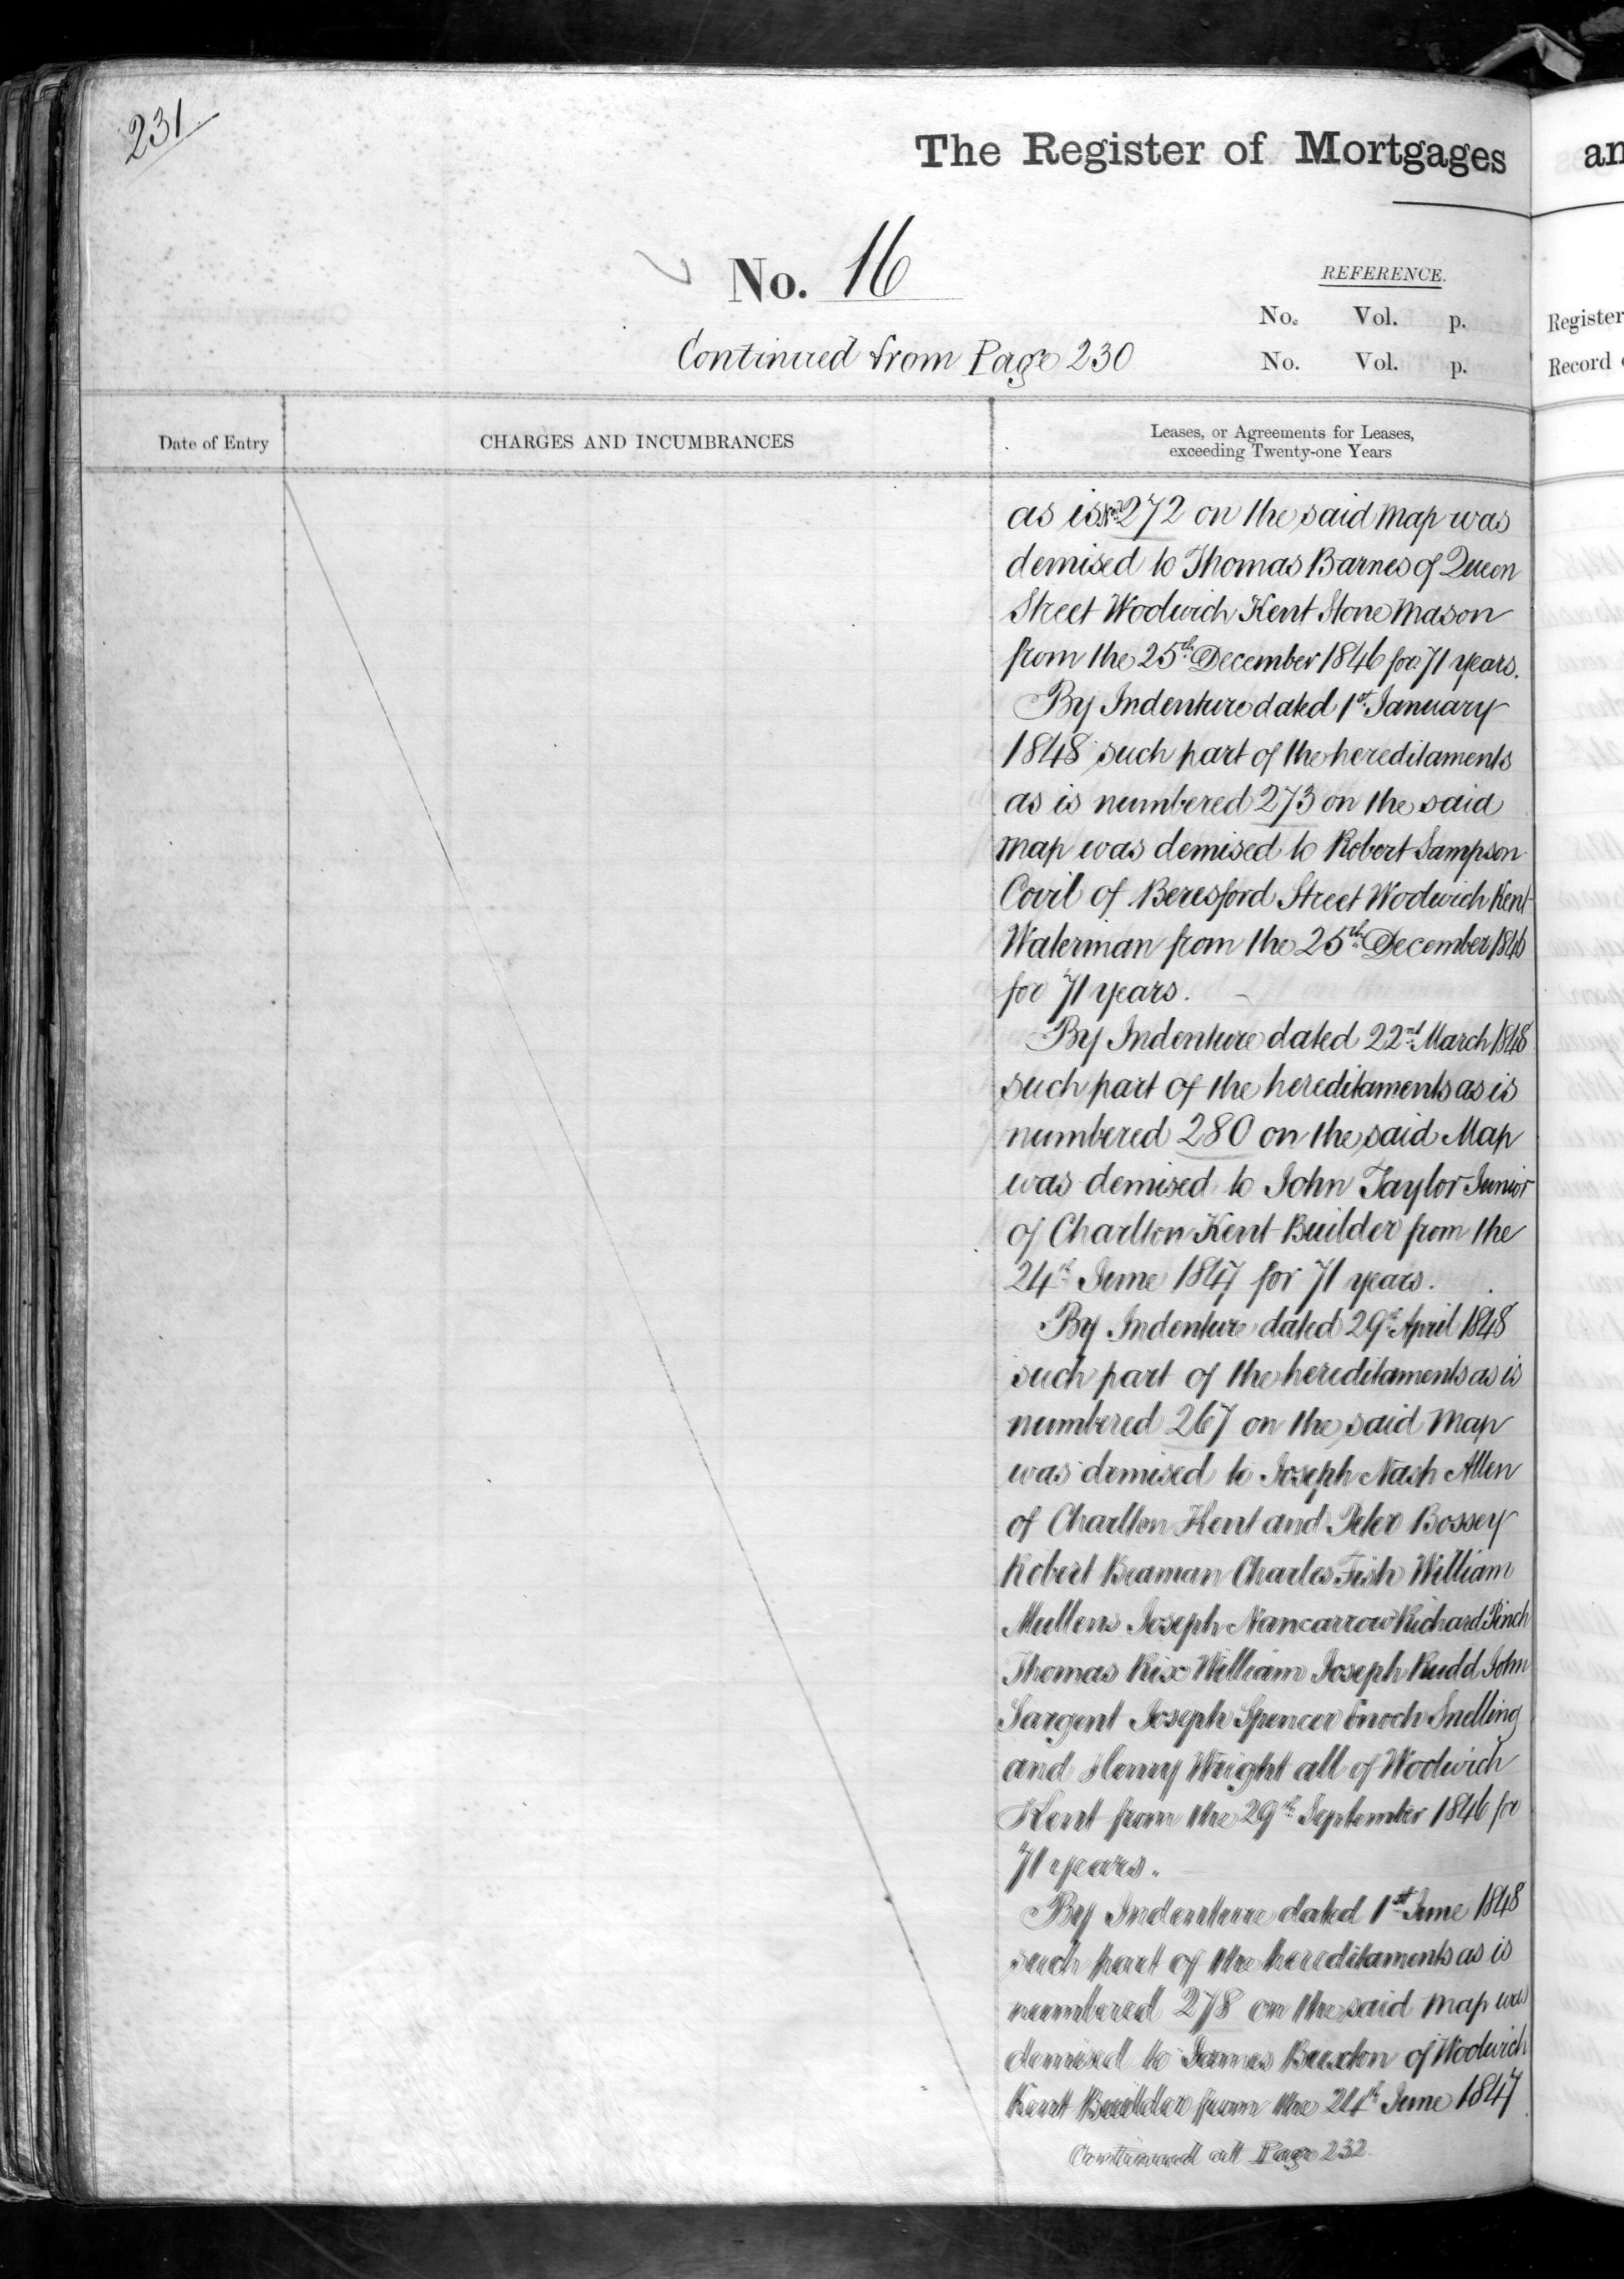 231
The Register of Mortgages
an
No. 16
REFERENCE.
No. Vol. p.
Register
Continued from Page 230
No. Vol. p.
Record
Date of Entry
CHARGES AND INCUMBRANCES
Leases, or Agreements for Leases,
exceeding Twenty-one Years
as is No. 272 on the said Map was
demised to Thomas Barnes of Queen
Street Woolwich Kent Stone Mason
from the 25th December 1846 for 71 years.
By Indenture dated 1st January
1848 such part of the hereditaments
as is numbered 273 on the said
Map was demised to Robert Sampson
Covil of Beresford Street Woolwich Kent
Waterman from the 25th December 1846
for 71 years.
By Indenture dated 22nd March 1848
such part of the hereditaments as is
numbered 280 on the said Map
was demised to John Taylor Junior
of Charlton Kent Builder from the
24th June 1847 for 71 years.
By Indenture dated 29th April 1848
such part of the hereditaments as is
numbered 267 on the said Map
was demised to Joseph Nash Allen
of Charlton Kent and Peter Bossey
Robert Beaman Charles Fish William
Mullens Joseph Nancarrow Richard Pinch
Thomas Rix William Joseph Rudd John
Sargent Joseph Spencer Enoch Snelling
and Henry Wright all of Woolwich
Kent from the 29th September 1846 for
71 years.
By Indenture dated 1st June 1848
such part of the hereditaments as is
numbered 278 on the said Map was
demised to James Buxton of Woolwich
Kent Builder from the 24th June 1847
Continued at Page 232